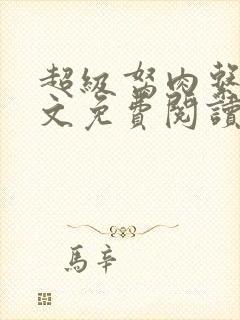 超級驽肉整
文免費閱讀
馬辛